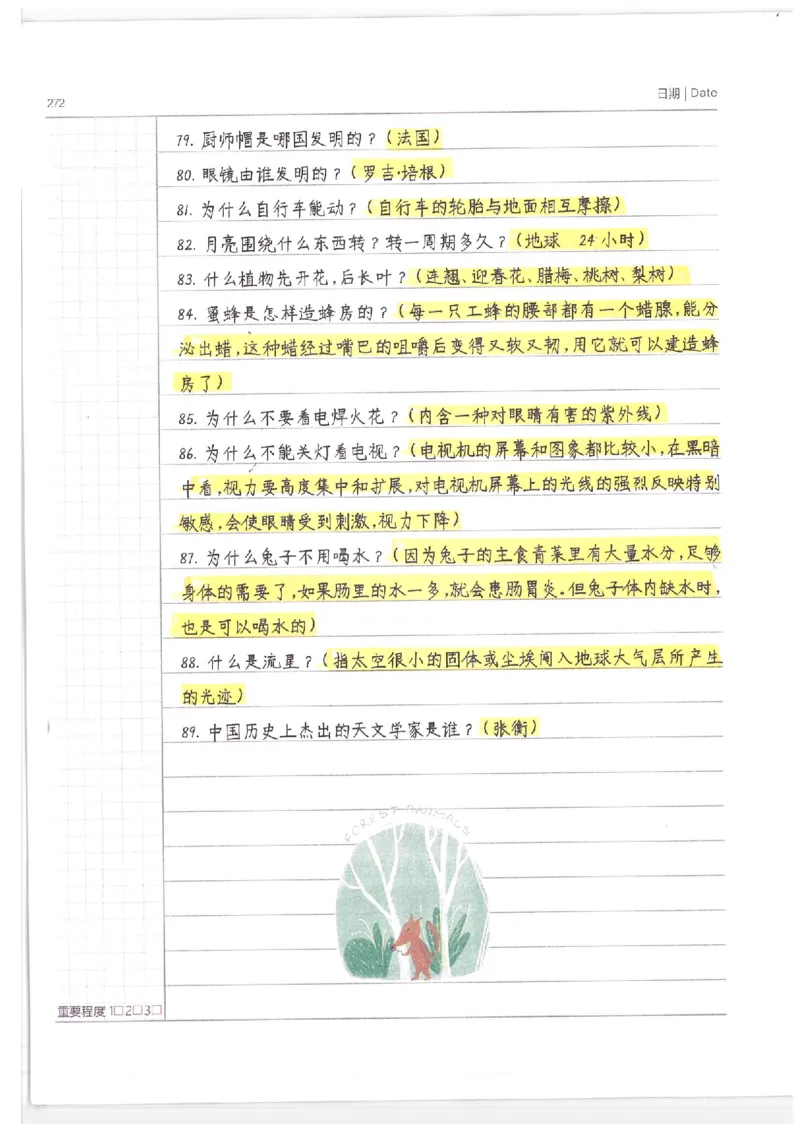 272
日期 | Date
79. 厨师帽是哪国发明的？(法国)
80. 眼镜由谁发明的？(罗吉·培根)
81. 为什么自行车能动？(自行车的轮胎与地面相互摩擦)
82. 月亮围绕什么东西转？转一周期多久？(地球 24小时)
83. 什么植物先开花,后长叶？(连翘、迎春花、腊梅、桃树、梨树)
84. 蜜蜂是怎样造蜂房的？(每一只工蜂的腰部都有一个蜡腺,能分
泌出蜡,这种蜡经过嘴巴的咀嚼后变得又软又韧,用它就可以建造蜂
房了)
85. 为什么不要看电焊火花？(内含一种对眼睛有害的紫外线)
86. 为什么不能关灯看电视？(电视机的屏幕和图象都比较小,在黑暗
中看,视力要高度集中和扩展,对电视机屏幕上的光线的强烈反映特别
敏感,会使眼睛受到刺激,视力下降)
87. 为什么兔子不用喝水？(因为兔子的主食青菜里有大量水分,足够
身体的需要了,如果肠里的水一多,就会患肠胃炎。但兔子体内缺水时,
也是可以喝水的)
88. 什么是流星？(指太空很小的固体或尘埃闯入地球大气层所产生
的光迹)
89. 中国历史上杰出的天文学家是谁？(张衡)
FOREST ANIMALS
重要程度 1□2□3□